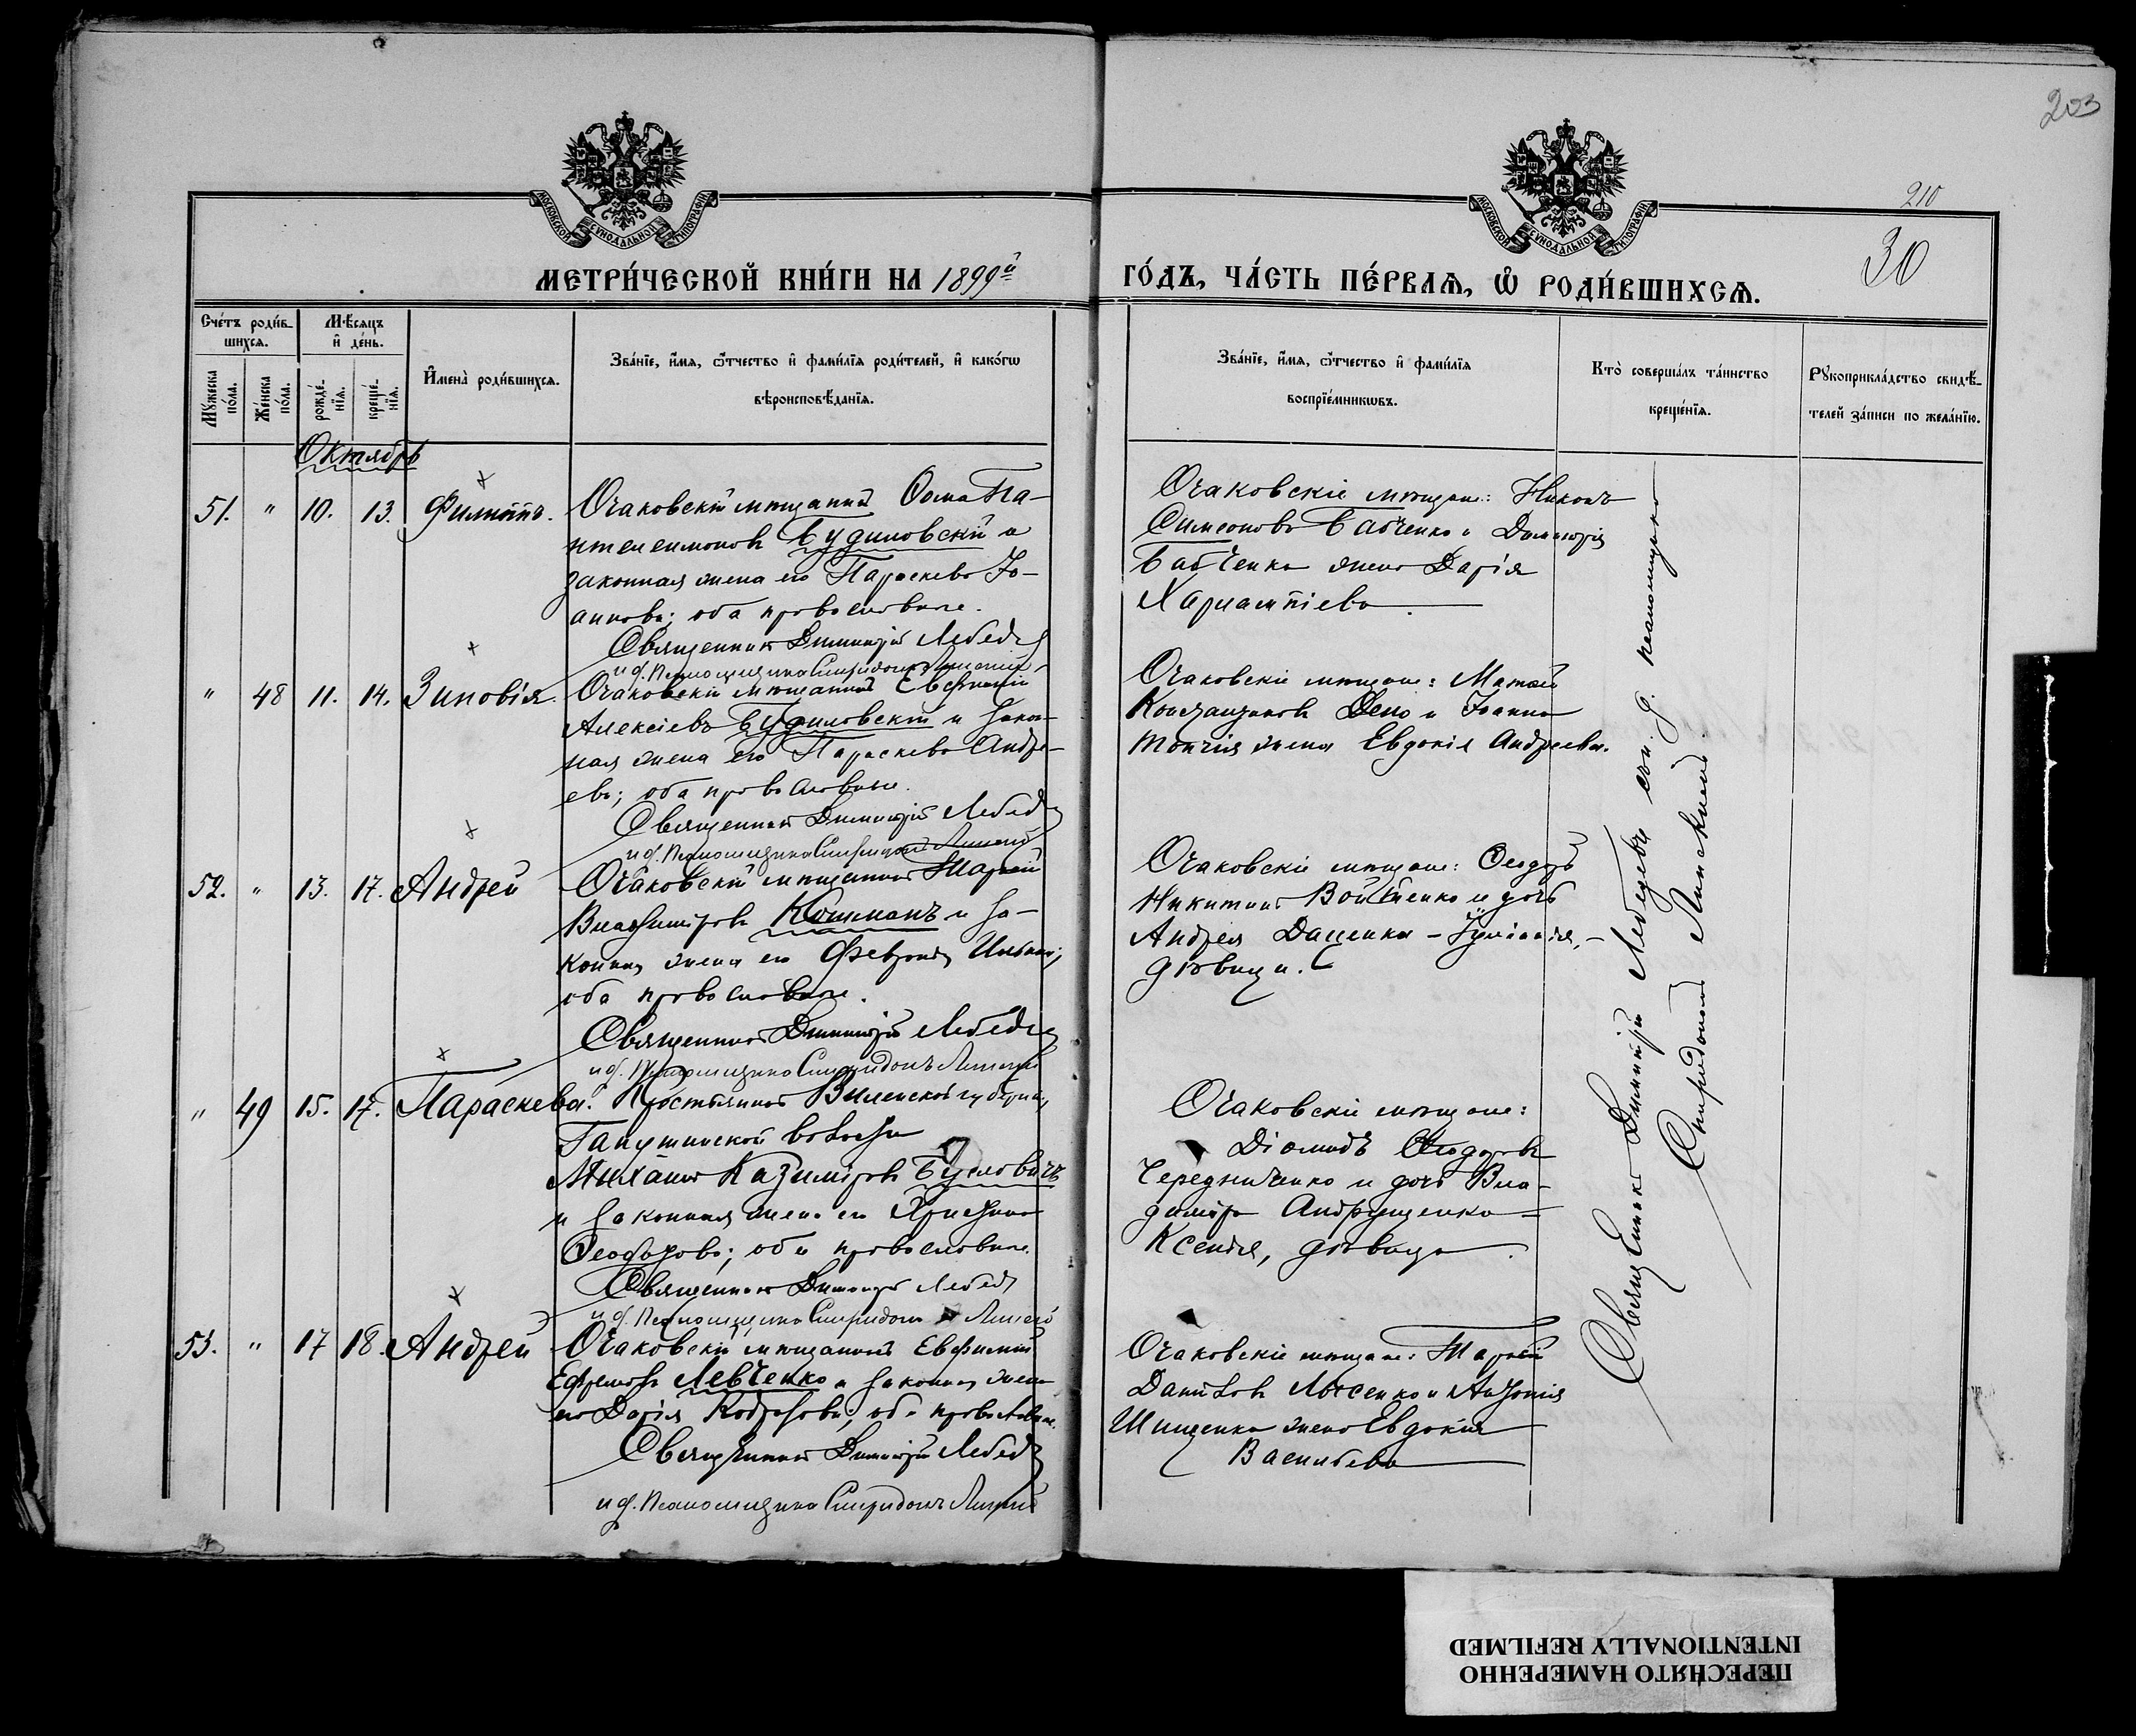 203
210
30
МОСКОВСКОЙ СѴНОДАЛЬНОЙ ТИПОГРАФІИ
МОСКОВСКОЙ СѴНОДАЛЬНОЙ ТИПОГРАФІИ
МЕТРИ́ЧЕСКОЙ КНИ́ГИ НА 1899й
ГО́ДЪ, ЧА́СТЬ ПЕ́РВАѦ, Ѽ РОДИ́ВШИХСѦ.
Сче́тъ роди́в-
шихсѧ.
Мꙋ́жеска по́ла.
Же́нска по́ла.
Мѣ́сѧцъ
и҆ де́нь.
рожде́-
нїѧ.
креще́-
нїѧ.
И҆мена̀ роди́вшихсѧ.
Зва́нїе, и҆́мѧ, ѻ҆́тчество и҆ фами́лїѧ роди́телей, и҆ како́гѡ
вѣроисповѣ́данїѧ.
Зва́нїе, и҆́мѧ, ѻ҆́тчество и҆ фами́лїѧ
воспрїе́мникѡвъ.
Кто̀ соверша́лъ та́инство
креще́нїѧ.
Рꙋкоприкла́дство свидѣ́-
телей за́писи по жела́нїю.
Октябрь
51. " 10. 13. Филиппъ.
Очаковскій мѣщанинъ Ѳома Па-
нтелеимоновъ Будиловскій и
законная жена его Параскева Іо-
аннова; оба православные.
Священникъ Димитрій Лебедев
и д. Псаломщика Спиридонъ
Очаковскіе мѣщане: Никонъ
Симеоновъ Бабченко и Димитрія
Бабченко жена Дарія
Харлампіева.
" 48 11. 14. Зиновія.
Очаковскій мѣщанинъ
Алексіевъ Будиловскій и закон-
ная жена его Параскева Андре-
ева; оба православные.
Священникъ Димитрій Лебедев
и д. Псаломщика Спиридонъ
Очаковскіе мѣщане: Матѳей
Константиновъ и Іоанна
жена Евдокія Андреева.
52. " 13. 17. Андрей
Очаковскій мѣщанинъ
Владиміровъ Кошманъ и за-
конная жена его Феврония
оба православные.
Священникъ Димитрій Лебедев
и д. Псаломщика Спиридонъ
Очаковскіе мѣщане: Ѳеодоръ
Никитинъ Войтенко и дочь
Андрея Даценка -
дѣвица.
" 49 15. 17. Параскева.
Крестьянинъ Виленской губерніи,
волости
Михаилъ Казиміровъ
и законная жена его Христина
Ѳеодорова; оба православные.
Священникъ Димитрій Лебедев
и д. Псаломщика Спиридонъ
Очаковскіе мѣщане:
Діомидъ Ѳеодоровъ
Чередниченко и дочь Вла-
диміра Андрущенка -
Ксенія, дѣвица.
53. " 17 18. Андрей
Очаковскій мѣщанинъ Евфимій
Ефремовъ Левченко и законная жена
его Дарія, оба православные.
Священникъ Димитрій Лебедев
и д. Псаломщика Спиридонъ
Очаковскіе мѣщане:
Даниловъ Лысенко и Антонія
Шищенка жена Евдокія
Васильева
Священникъ Димитрій Лебедевъ съ и. д. псаломщика
Спиридономъ
ПЕРЕСНЯТО НАМЕРЕННО
INTENTIONALLY REFILMED